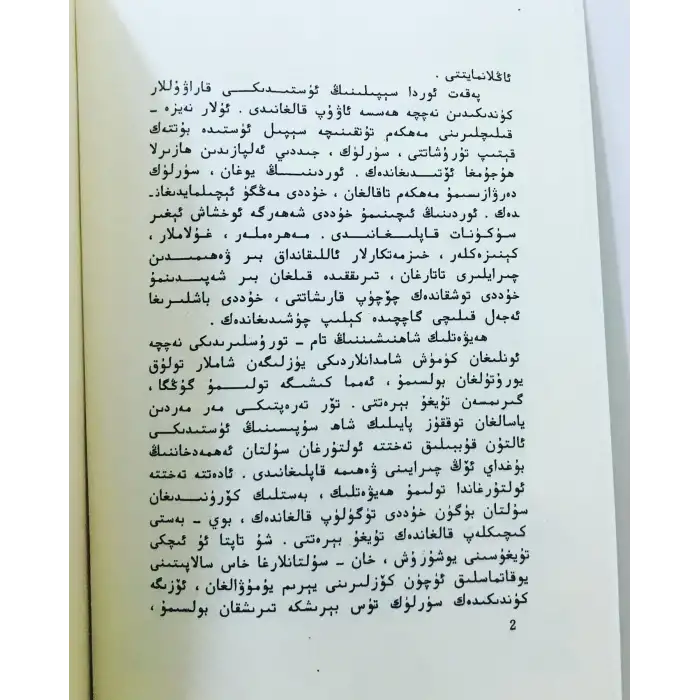 ئاڭلانمايتتى .
پەقەت ئوردا سېپىلىنىڭ ئۈستىدىكى قاراۋۇللار
كۈندىكىدىن نەچچە ھەسسە ئاۋۇپ قالغانىدى . ئۇلار نەيزە ـ
قىلىچلىرىنى مەھكەم تۇتقىنىچە سېپىل ئۈستىدە بۇتتەك
قېتىپ تۇرۇشاتتى ، سۈرلۈك ، جىددىي ئەلپازىدىن ھازىرلا
ھۇجۇمغا ئۆتىدىغاندەك . ئوردىنىڭ يوغان ، سۈرلۈك
دەرۋازىسىمۇ مەھكەم تاقالغان ، خۇددى مەڭگۈ ئېچىلمايدىغانـ
دەك . ئوردىنىڭ ئىچىنىمۇ خۇددى شەھەرگە ئوخشاش ئېغىر
سۈكۈنات قاپلىغانىدى . مەھرەملەر ، غۇلاملار ،
كېنىزەكلەر ، خىزمەتكارلار ئاللىقانداق بىر ۋەھىمىدىن
چىرايلىرى تاتارغان ، تىرىققىدە قىلغان بىر شەپىدىنمۇ
خۇددى توشقاندەك چۆچۈپ قارىشاتتى ، خۇددى باشلىرىغا
ئەجەل قىلىچى گاچچىدە كېلىپ چۈشىدىغاندەك .
ھەيۋەتلىك شاھنىشىننىڭ تام ـ تورۇسلىرىدىكى نەچچە
ئونلىغان كۈمۈش شامدانلاردىكى يۈزلىگەن شاملار تولۇق
يورۇتۇلغان بولسىمۇ ، ئەمما كىشىگە تولىمۇ گۇڭگا ،
گىرىمسەن تۇيغۇ بېرەتتى . تۆر تەرەپتىكى مەر مەردىن
ياسالغان توققۇز پايىلىك شاھ سۇپىسىنىڭ ئۈستىدىكى
ئالتۇن قۇببىلىق تەختتە ئولتۇرغان سۇلتان ئەھمەدخاننىڭ
بۇغداي ئۆڭ چىرايىنى ۋەھىمە قاپلىغانىدى . ئادەتتە تەختتە
ئولتۇرغاندا تولىمۇ ھەيۋەتلىك ، بەستلىك كۆرۈنىدىغان
سۇلتان بۈگۈن خۇددى تۈگۈلۈپ قالغاندەك ، بوي ـ بەستى
كىچىكلەپ قالغاندەك تۇيغۇ بېرەتتى . شۇ تاپتا ئۇ ئىچكى
تۇيغۇسىنى يوشۇرۇش ، خان ـ سۇلتانلارغا خاس سالاپىتىنى
يوقاتماسلىق ئۈچۈن كۆزلىرىنى يېرىم يۇمۇۋالغان ، ئۆزىگە
كۈندىكىدەك سۈرلۈك تۈس بېرىشكە تىرىشقان بولسىمۇ ،
2